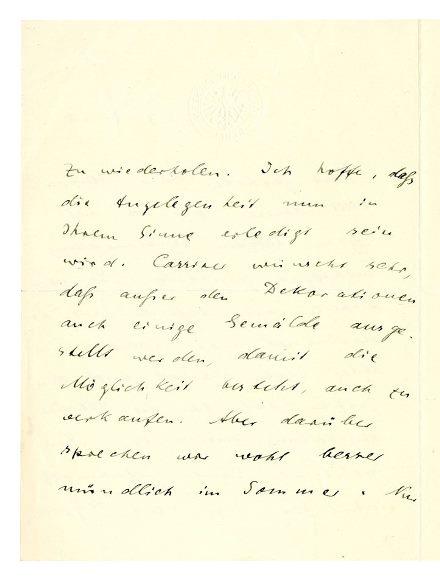 zu wiederholen. Ich hoffe, daß
die Angelegenheit nun in
Ihrem Sinne erledigt sein
wird. wünscht sehr,
daß außer den Dekorationen
auch einige Gemälde ausge-
stellt werden, damit die
Möglichkeit besteht, auch zu
verkaufen. Aber darüber
sprechen wir wohl besser
mündlich im Sommer. Nur